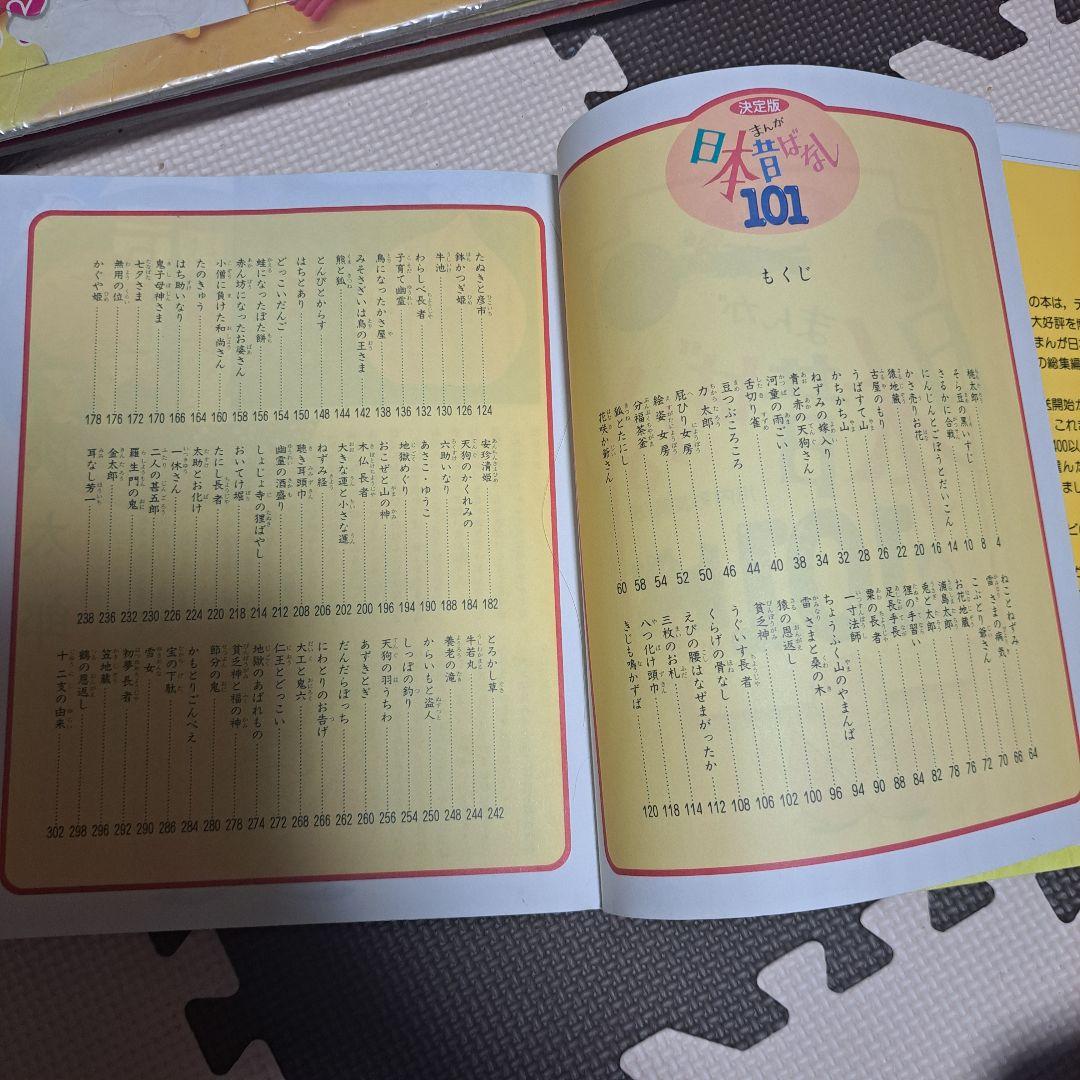 決定版
まんが
日本昔ばなし
101
もくじ
桃太郎 4
そら豆の黒いすじ 8
さるかに合戦 10
にんじんとごぼうとだいこん 14
かさ売りお花 16
猿地蔵 20
古屋のもり 22
うばすて山 26
かちかち山 28
ねずみの嫁入り 32
青と赤の天狗さん 34
河童の雨ごい 38
舌切り雀 40
豆つぶころころ 44
力太郎 46
屁ひり女房 50
絵姿女房 52
分福茶釜 54
狐とたにし 58
花咲か爺さん 60
ねことねずみ 64
雷さまの病気 66
こぶとり爺さん 70
お花地蔵 72
浦島太郎 76
兎と太郎 78
狸の手習い 82
足長手長 84
粟の長者 88
一寸法師 90
ちょうふく山のやまんば 94
雷さまと桑の木 96
猿の恩返し 100
貧乏神 102
うぐいす長者 106
くらげの骨なし 108
えびの腰はなぜまがったか 112
三枚のお札 114
八つ化け頭巾 118
きじも鳴かずば 120
たぬきと彦市 124
鉢かつぎ姫 126
牛池 130
わらしべ長者 132
子育て幽霊 136
鳥になったかさ屋 138
みそさざいは鳥の王さま 142
熊と狐 144
とんびとからす 148
はちとあり 150
どっこいだんご 154
蛙になったぼた餅 156
赤ん坊になったお婆さん 158
小僧に負けた和尚さん 160
たのきゅう 164
はち助いなり 166
鬼子母神さま 170
七夕さま 172
無用の位 176
かぐや姫 178
安珍清姫 182
天狗のかくれみの 184
六助いなり 188
あさこ・ゆうこ 190
地獄めぐり 194
おこぜと山の神 196
木仏長者 200
大きな運と小さな運 202
ねずみ経 206
聴き耳頭巾 208
幽霊の酒盛り 212
しょじょ寺の狸ばやし 214
おいてけ堀 218
たにし長者 220
太助とお化け 224
一休さん 226
二人の甚五郎 230
羅生門の鬼 232
金太郎 236
耳なし芳一 238
とろかし草 242
牛若丸 244
養老の滝 248
からいもと盗人 250
しっぽの釣り 254
天狗の羽うちわ 256
あずきとぎ 260
だんだらぼっち 262
にわとりのお告げ 266
大工と鬼六 268
仁王とどっこい 272
地獄のあばれもの 274
貧乏神と福の神 278
節分の鬼 280
かもとりごんべえ 284
宝の下駄 286
雪女 290
初夢長者 292
笠地蔵 296
鶴の恩返し 298
十二支の由来 302
の本は、テ
大好評を
まんが日
の総集編